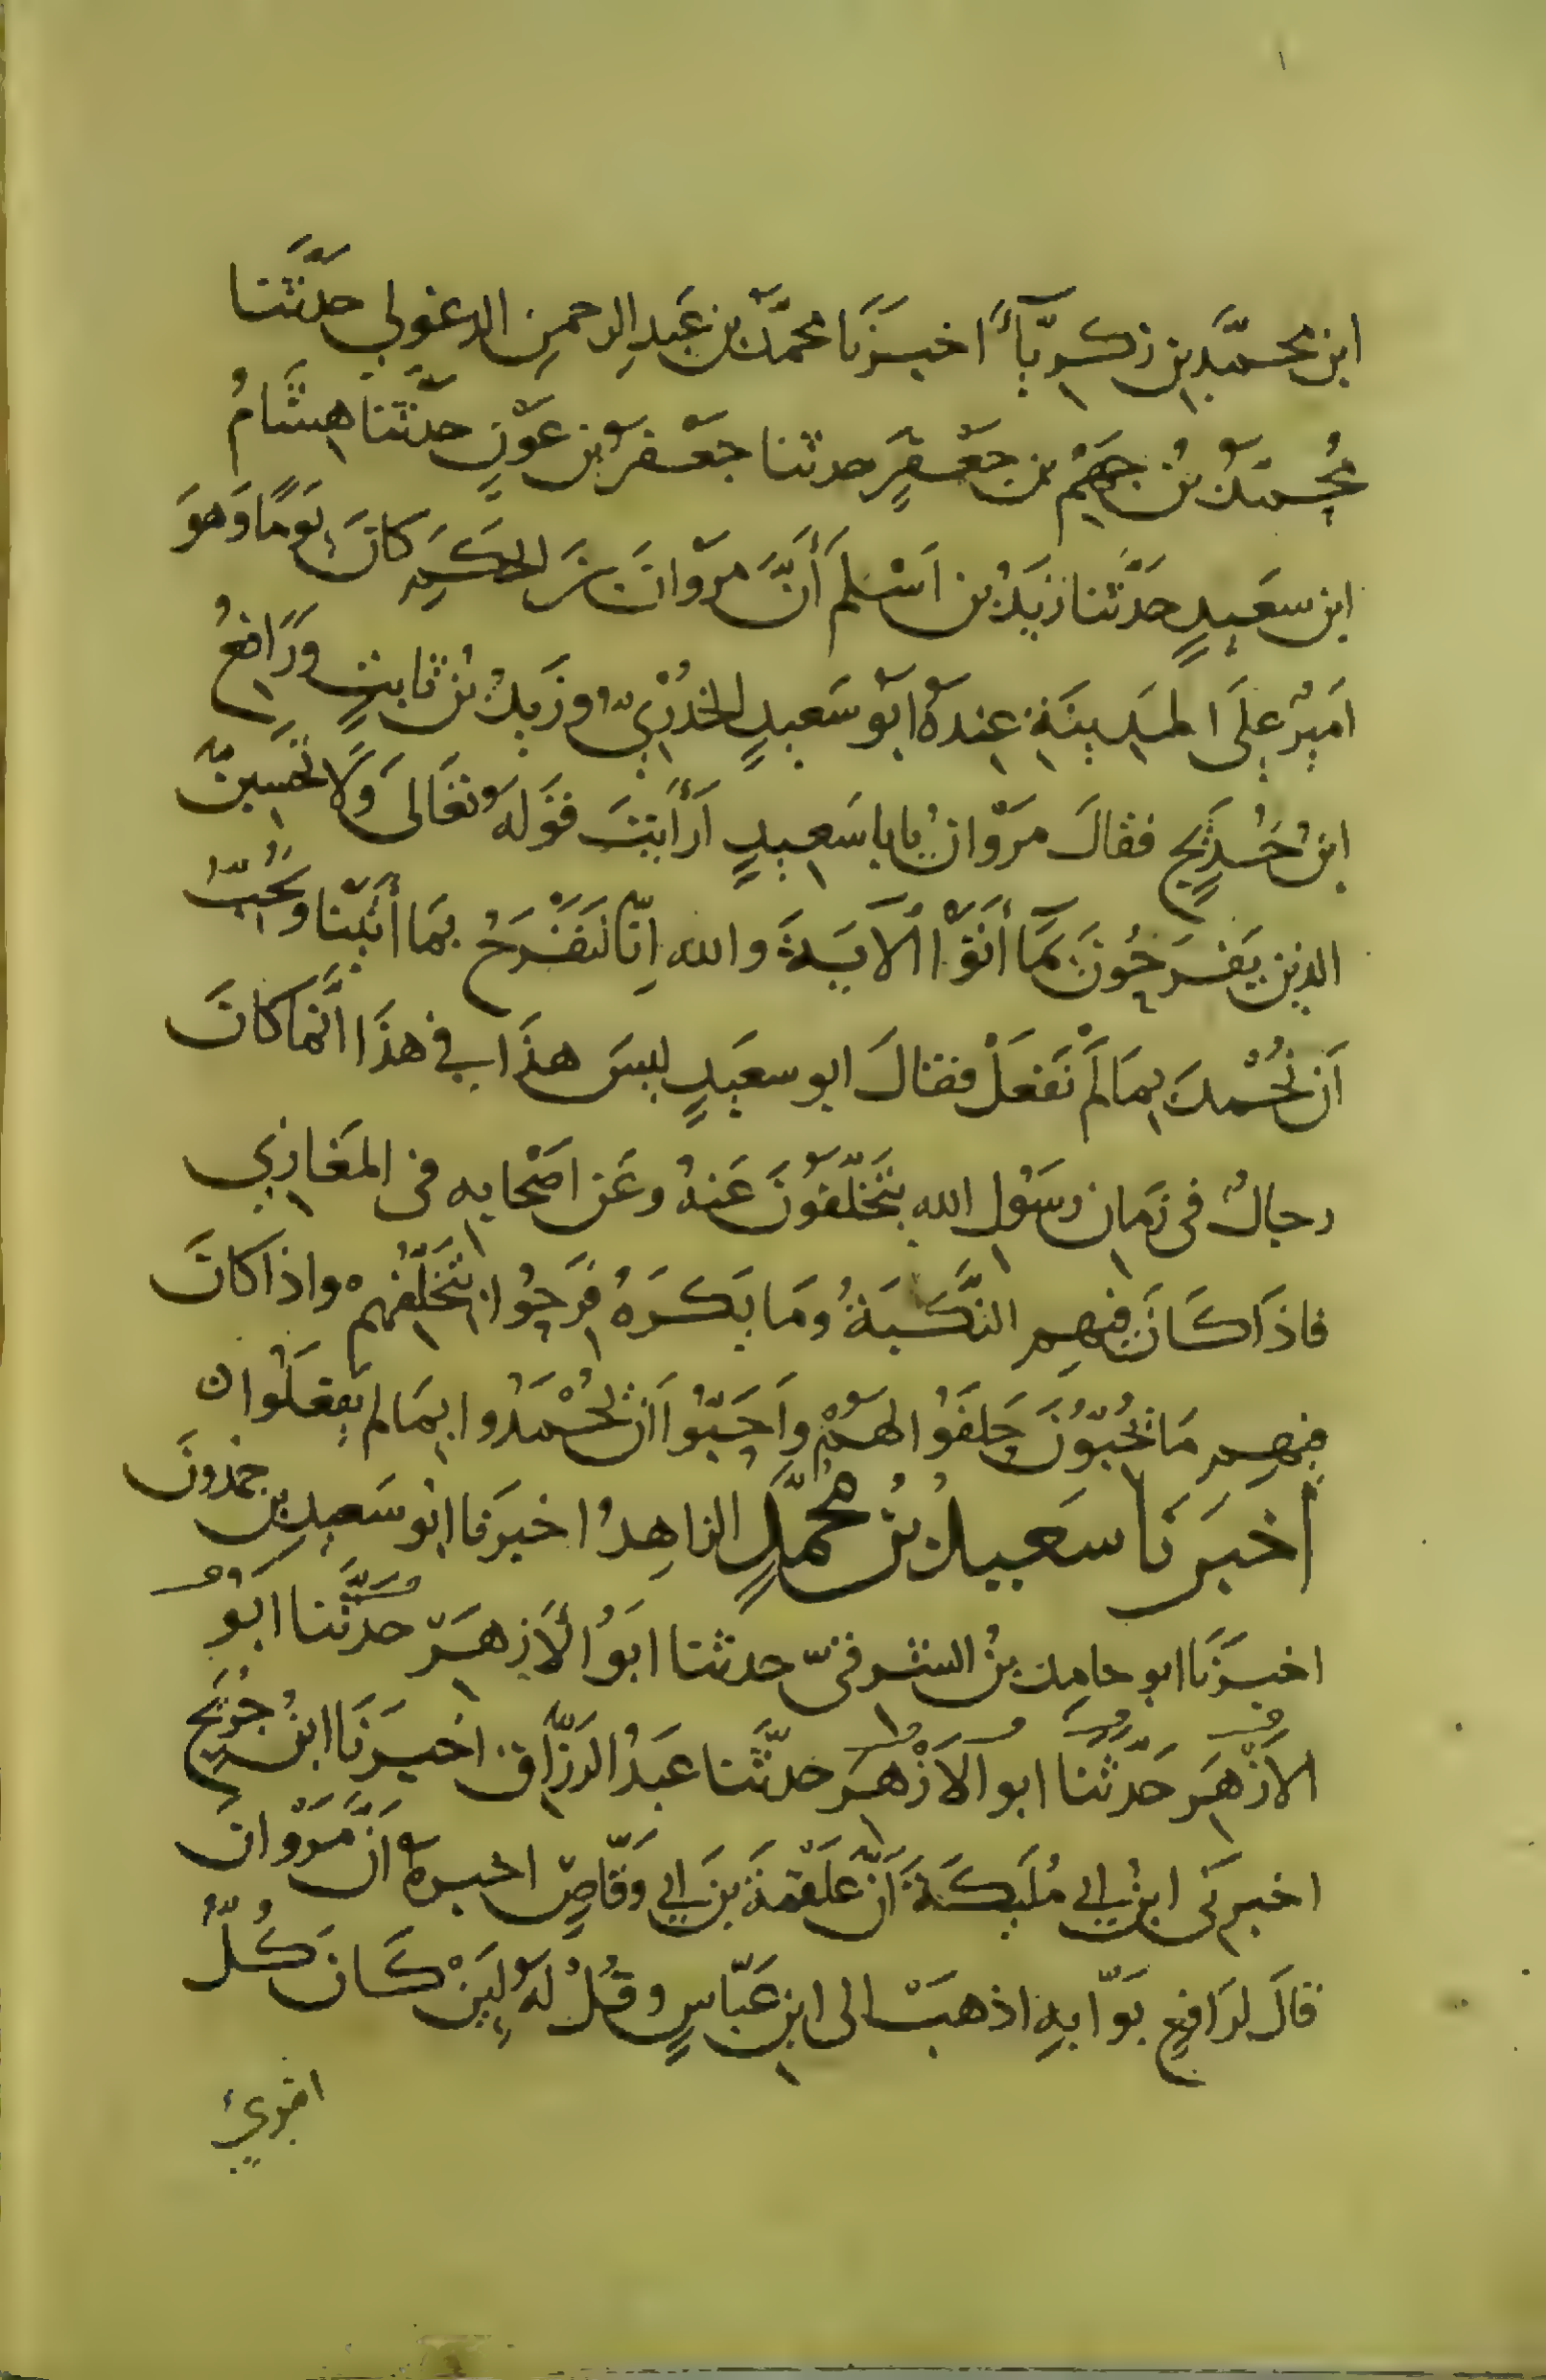 ١
ابن محمّد بن زكريّاءَ اخبرَنَا محمّدُ بن عَبدِ الرحمنِ الدغولي حدَّثَنا
مُحمّدُ بنُ جهمْ بن جَعْفرٍ حدثنا جعْفرُ بن عوْنٍ حدَّثَنا هشَامُ
ابن سعَيدٍ حَدَّثنا زَيدُ بن اَسْلم أَنَّ مرْوانَ بنَ الحكَمِ كانَ يَومًا وَهوَ
اَميرٌ عِلَى المدِينَةِ عِندهُ ابوُ سَعيدٍ الخدْرِيّ وزَيدُ بنُ ثابتٍ ورَافعُ
ابنُ خُدَيْجٍ فقالَ مَرْوانُ يابا سَعيدٍ اَرأَيتَ قَولهُ تعَالى وَلا تحسبنّ
الذين يَفرَحُونَ بمَا أَتَوْا الآيَةَ والله اِنّا لنَفْرَحُ بمَا أُتيْنا ونُحبّ
اَن نُحْمدَ بمَا لَم نَفعَلْ فقالَ ابو سعَيدٍ ليسَ هذَا في هذَا انّما كانَ
رجالٌ في زمَانِ رسَوُلِ الله يتَخلّفوُنَ عَنهُ وعَن اصْحابِه في المغَازِي
فاذَا كَانَ فيهِم النَّكبَةُ ومَا يَكرَهُ فرَحوُا بتَخلّفهِم واذا كانَ
فيهِم مَا يُحبّوُنَ حلفَوُا لهمُْ واَحَبّوُا اَن يُحْمَدُوا بمَا لم يَفعَلوُا ن
اَخبَرنَا سَعيدُ بنُ محُمّدٍ الزاهِدُ اخبرَنا ابوُ سَعيدِ بن حمْدونَ
اخبرَنَا ابو حامِد بنُ الشرقيّ حدثنا ابوُ الأَزهَرِ حدَّثنا ابوُ
الاَزْهَرِ حَدّثَنَا ابو الاَزْهَرِ حدّثَنا عَبدُ الرزّاق اخبرَنَا ابنُ جُرَيْجٍ
اخبرَنى ابنُ ابي مُلَيكَةَ اَنّ عَلقمَةَ بنَ ابي وَقّاصٍ اخبره اَنّ مَرْوانَ
قالَ لرَافعٍ بَوّابِهِ اذهبْ الى ابنِ عَبّاسٍ وقُلْ لهُ لِئنْ كَانَ كُلُّ
امْرئ